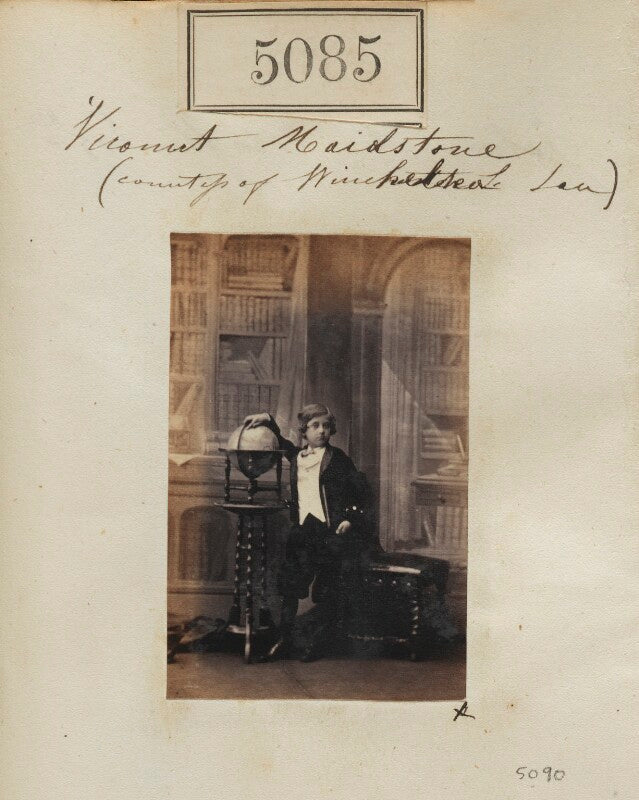 5085
Viscount Maidstone
(countess of Winchelsea Son)
5090